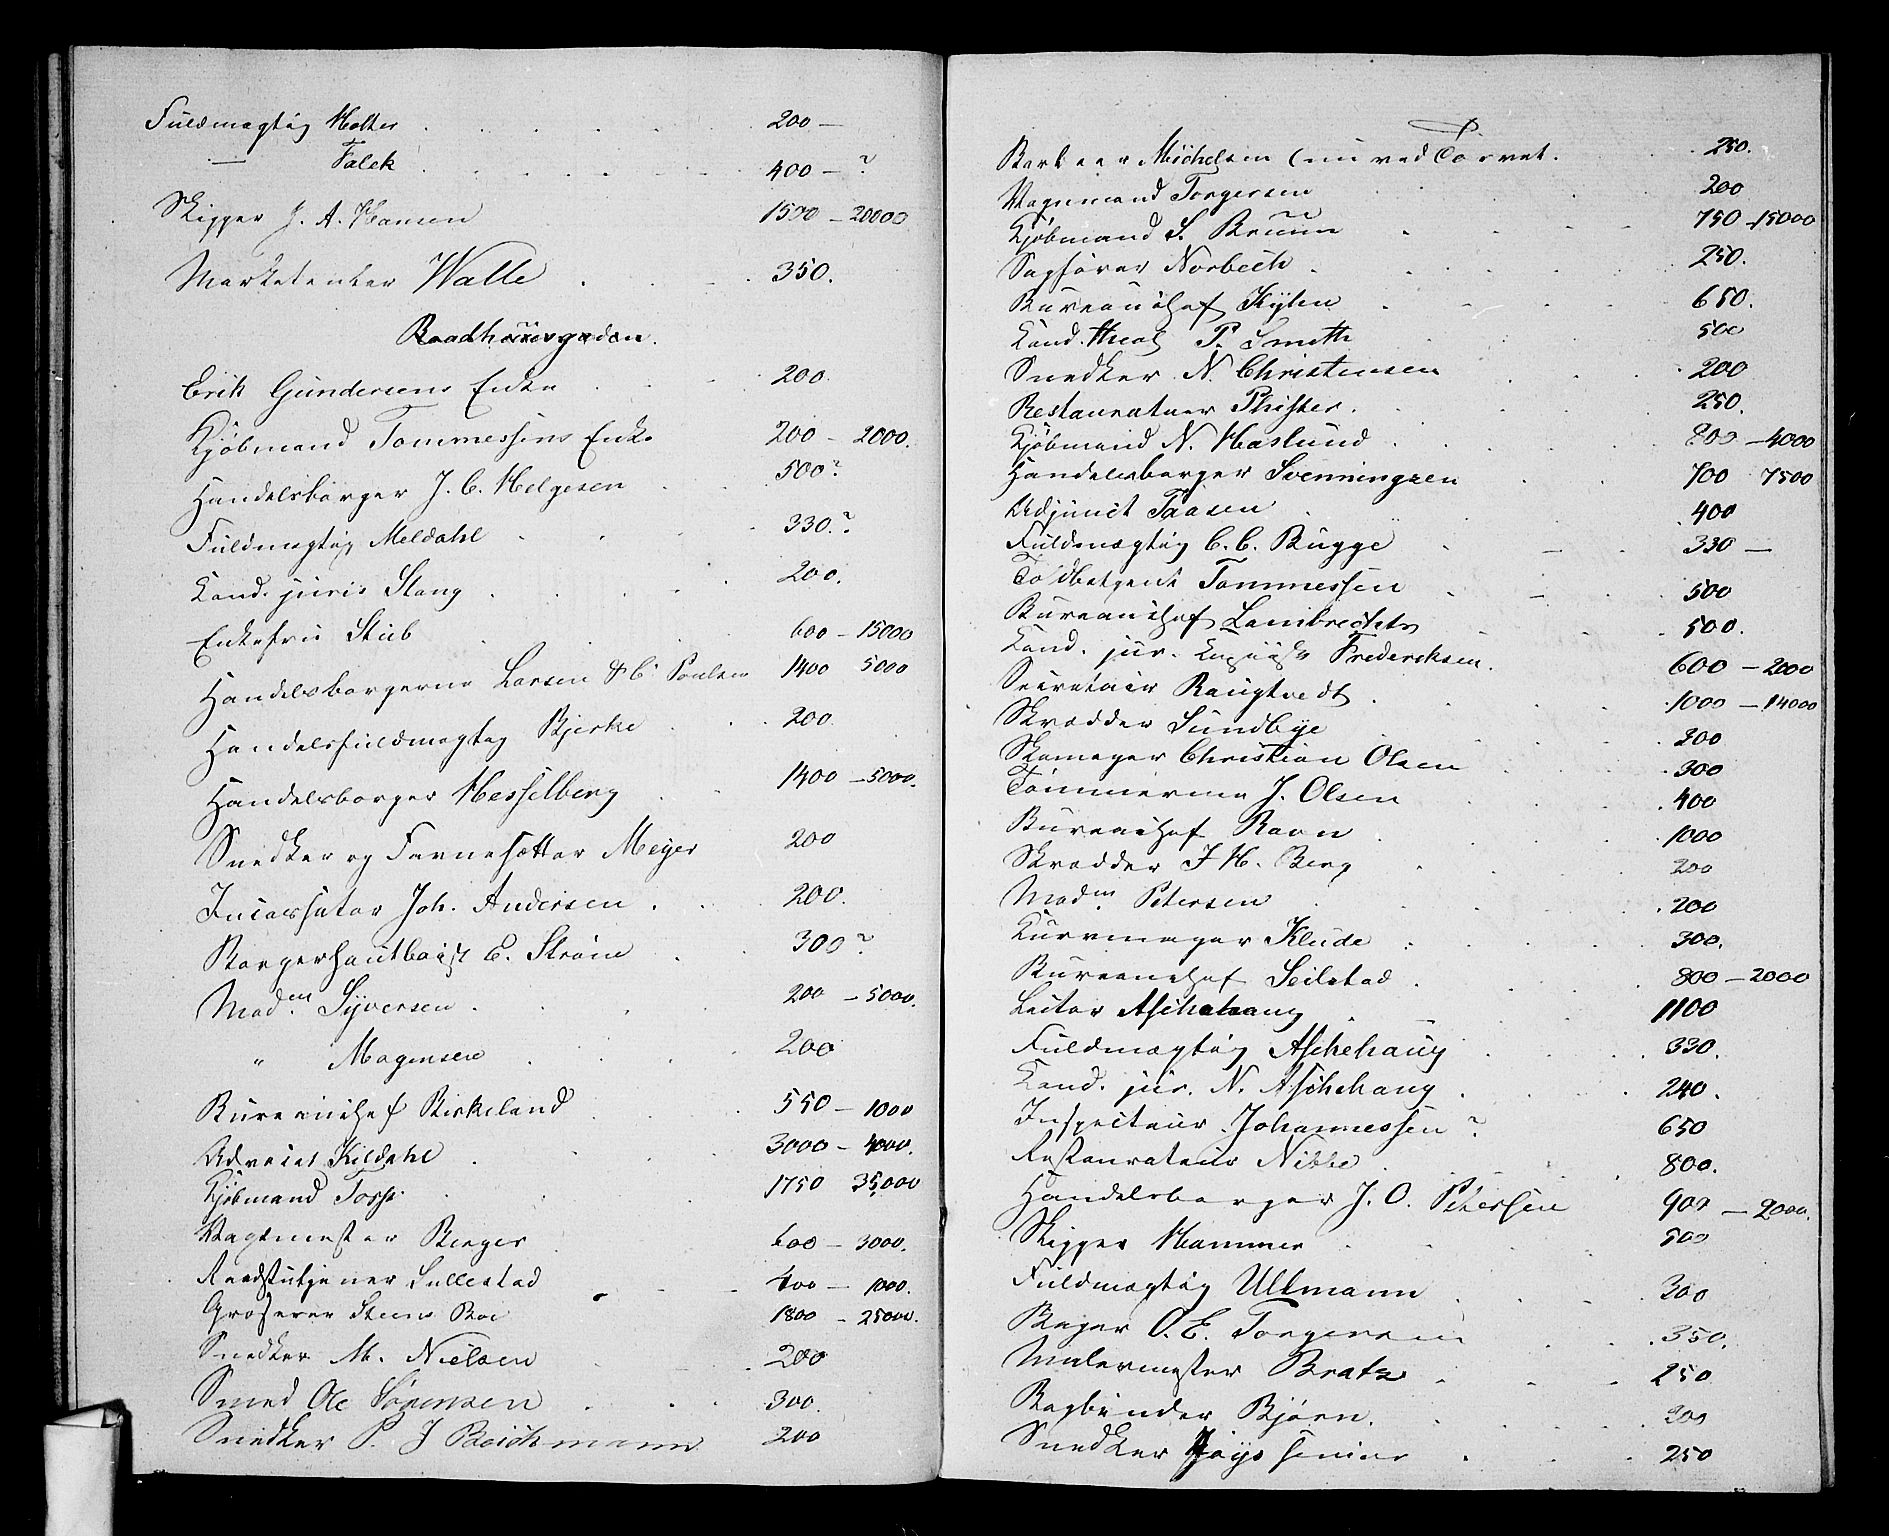 Fuldmægtig Holter 200 —
— Falck 400 — ?
Skipper J. A. Hansen 1500 — 20000
Marketenter Walle 350.
Raadhuusgaden.
Erik Gundersens Enke 200.
Kjöbmand Tommessens Enke 200 — 2000.
Handelsborger J. C. Helgesen 500?
Fuldmægtig Meldahl 330.?
Cand. juris Stang 200.
Enkefru Stub 600 — 15000
Handelsborgerne Larsen & C. Poulsen 1400 5000
Handelsfuldmægtig Bjerke 200.
Handelsborger Hesselberg 1400 — 5000.
Snedker og Farvesætter Meyer 200
Incassator Joh. Andersen 200.
Borgerhautboist E. Strøm 300?
Mad.m Syversen 200 — 5000.
" Mogensen 200
Bureauchef Birkeland 550 — 1000
Advocat Kildahl 3000 — 4000.
Kjöbmand Torp 1750 35,000
Vagtmester Berger 600 — 3000.
Raadstutjener Sullestad 400 — 1000.
Grosserer Steens Boe 1800 — 25000.
Snedker M. Nielsen 200
Smed Ole Sörensen 300.
Snedker P. J. Boichmann 200
Barbeer Michelsen (nu ved Torvet. 250.
Vognmand Torgersen 200
Kjöbmand S. Bruun 750 — 15000
Sagförer Norbech 250.
Bureauchef Hylen 650.
Cand. theol P. Smith 500
Snedker N. Christensen 200
Restaurateur Phister. 250.
Kjöbmand N. Haslund 800 — 4000
Handelsborger Svenningsen 700 7500
Adjunct Faasen 400
Fuldmægtig C. C. Bugge 330 —
Toldbetjent Tommessen 500
Bureauchef Lambrechts 500.
Cand. jur. August Fredriksen. 600 — 2000
Secretair Raugtvedt 1000 — 14000
Skrædder Sundbye 200
Skomager Christian Olsen 300
Tömmermd J. Olsen 400
Bureauchef Ravn 1000
Skrædder J. H. Berg 200
Mad.m Petersen 200
Kurvmager Klude 300.
Bureauchef Seilstad 800 — 2000
Lector Aschehoug 1100
Fuldmægtig Aschehoug 330.
Cand. jur. N. Aschehoug 240.
Inspecteur Johannessen? 650
Restaurateur Nibbe 800.
Handelsborger J. O. Petersen 900 — 2000.
Skipper Hammer 500
Fuldmægtig Ullmann 300
Bager O. E. Torgersen 350.
Malermester Bratz 250
Bogbinder Björn. 200
Snedker Höys senior 250